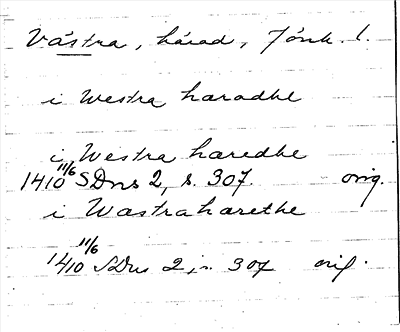 Västra, härad, Jönk. l.
i Westra haradhe
i Westra haredhe
1410 11/6 SDns 2, s. 307. orig.
i Wastraharethe
1410 11/6 SDns 2, s. 307 orig.